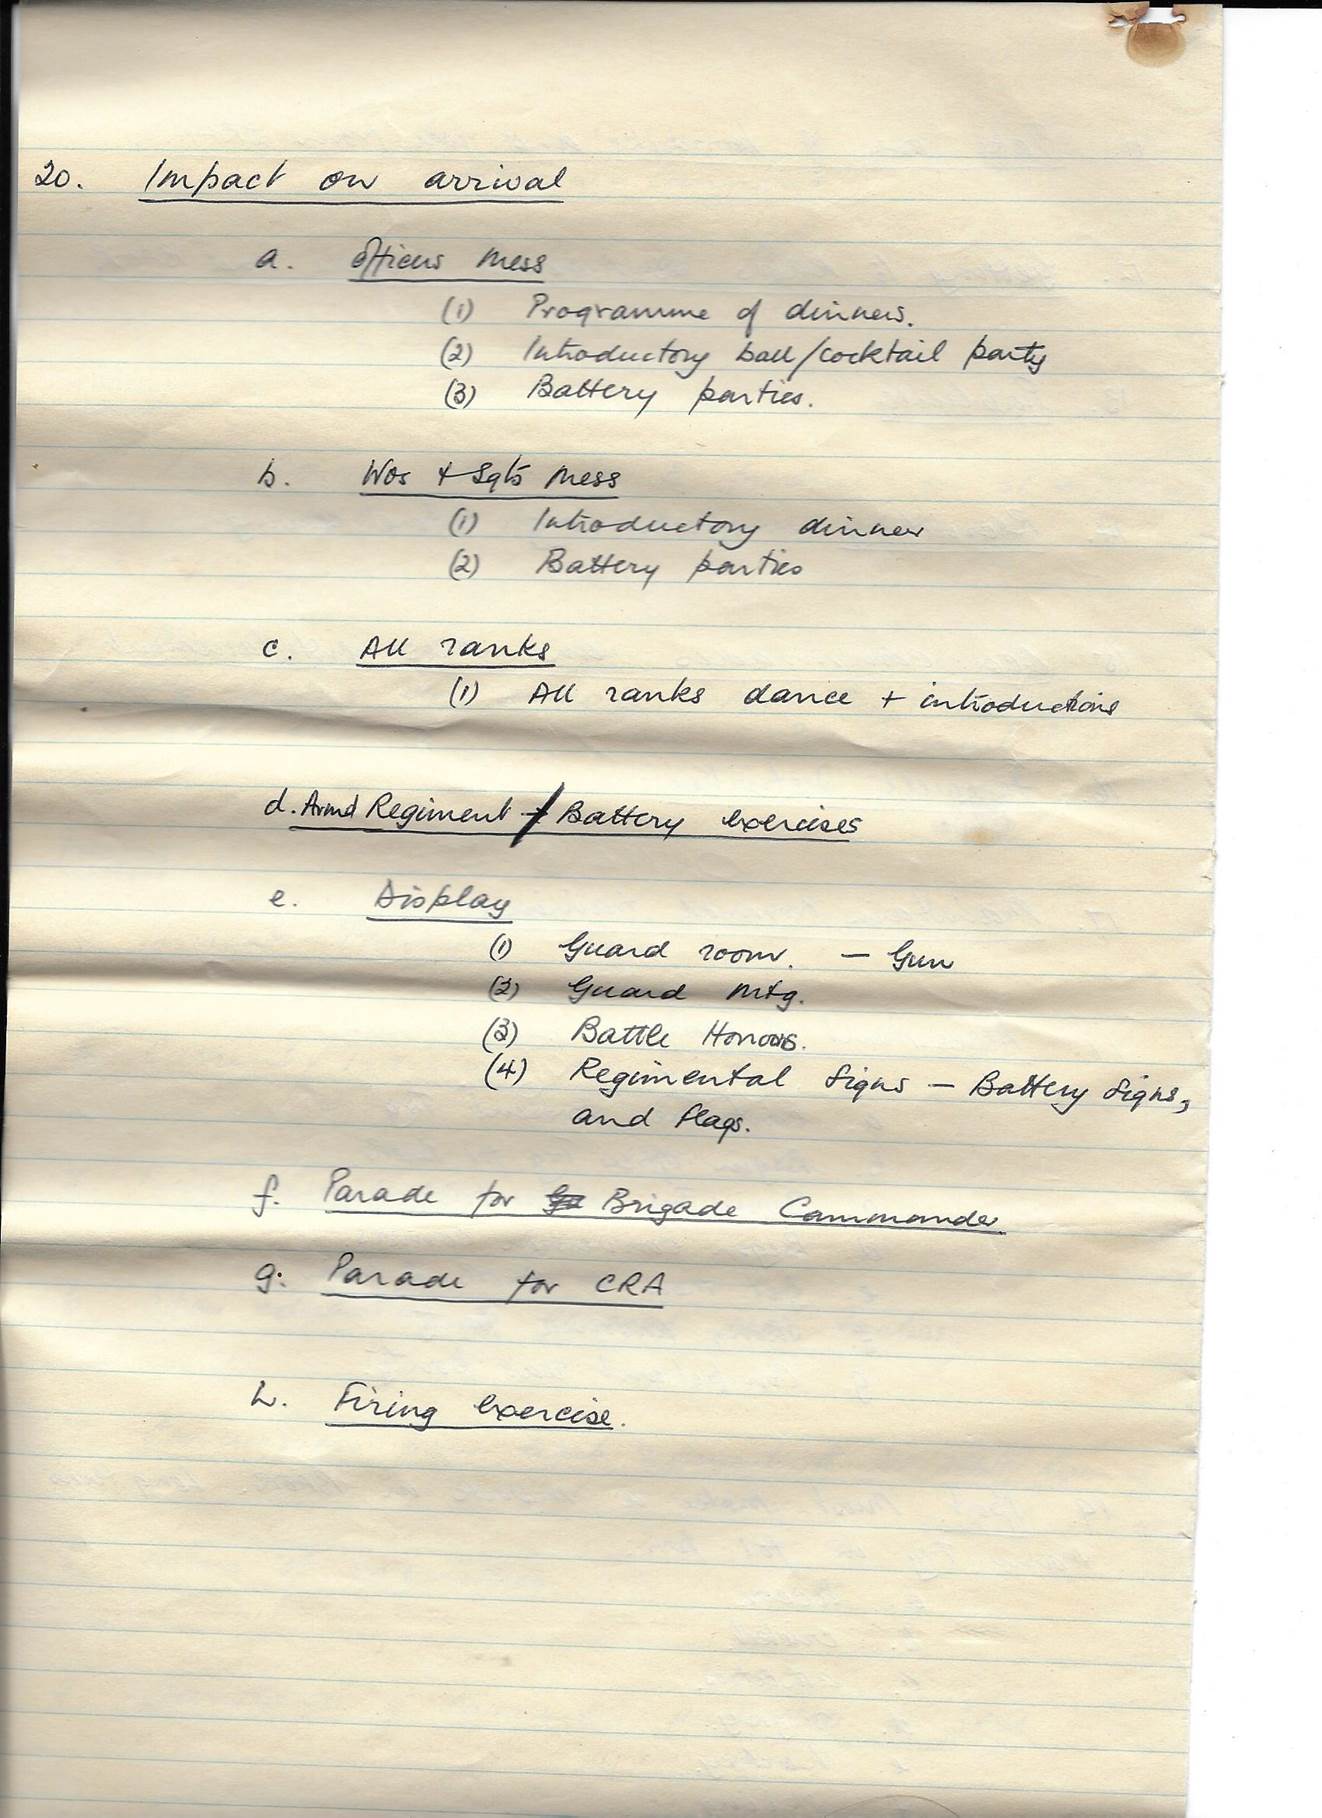 20. Impact on arrival
a. Officers Mess
(1) Programme of dinners.
(2) Introductory ball/cocktail party
(3) Battery parties.
b. WOs + Sgts Mess
(1) Introductory dinner
(2) Battery parties
c. All ranks
(1) All ranks dance + introductions
d. Armd Regiment / Battery exercises
e. Display
(1) Guard room. — Gun
(2) Guard Mtg.
(3) Battle Honours.
(4) Regimental Signs — Battery Signs,
and flags.
f. Parade for Brigade Commander
g. Parade for CRA
h. Firing exercise.